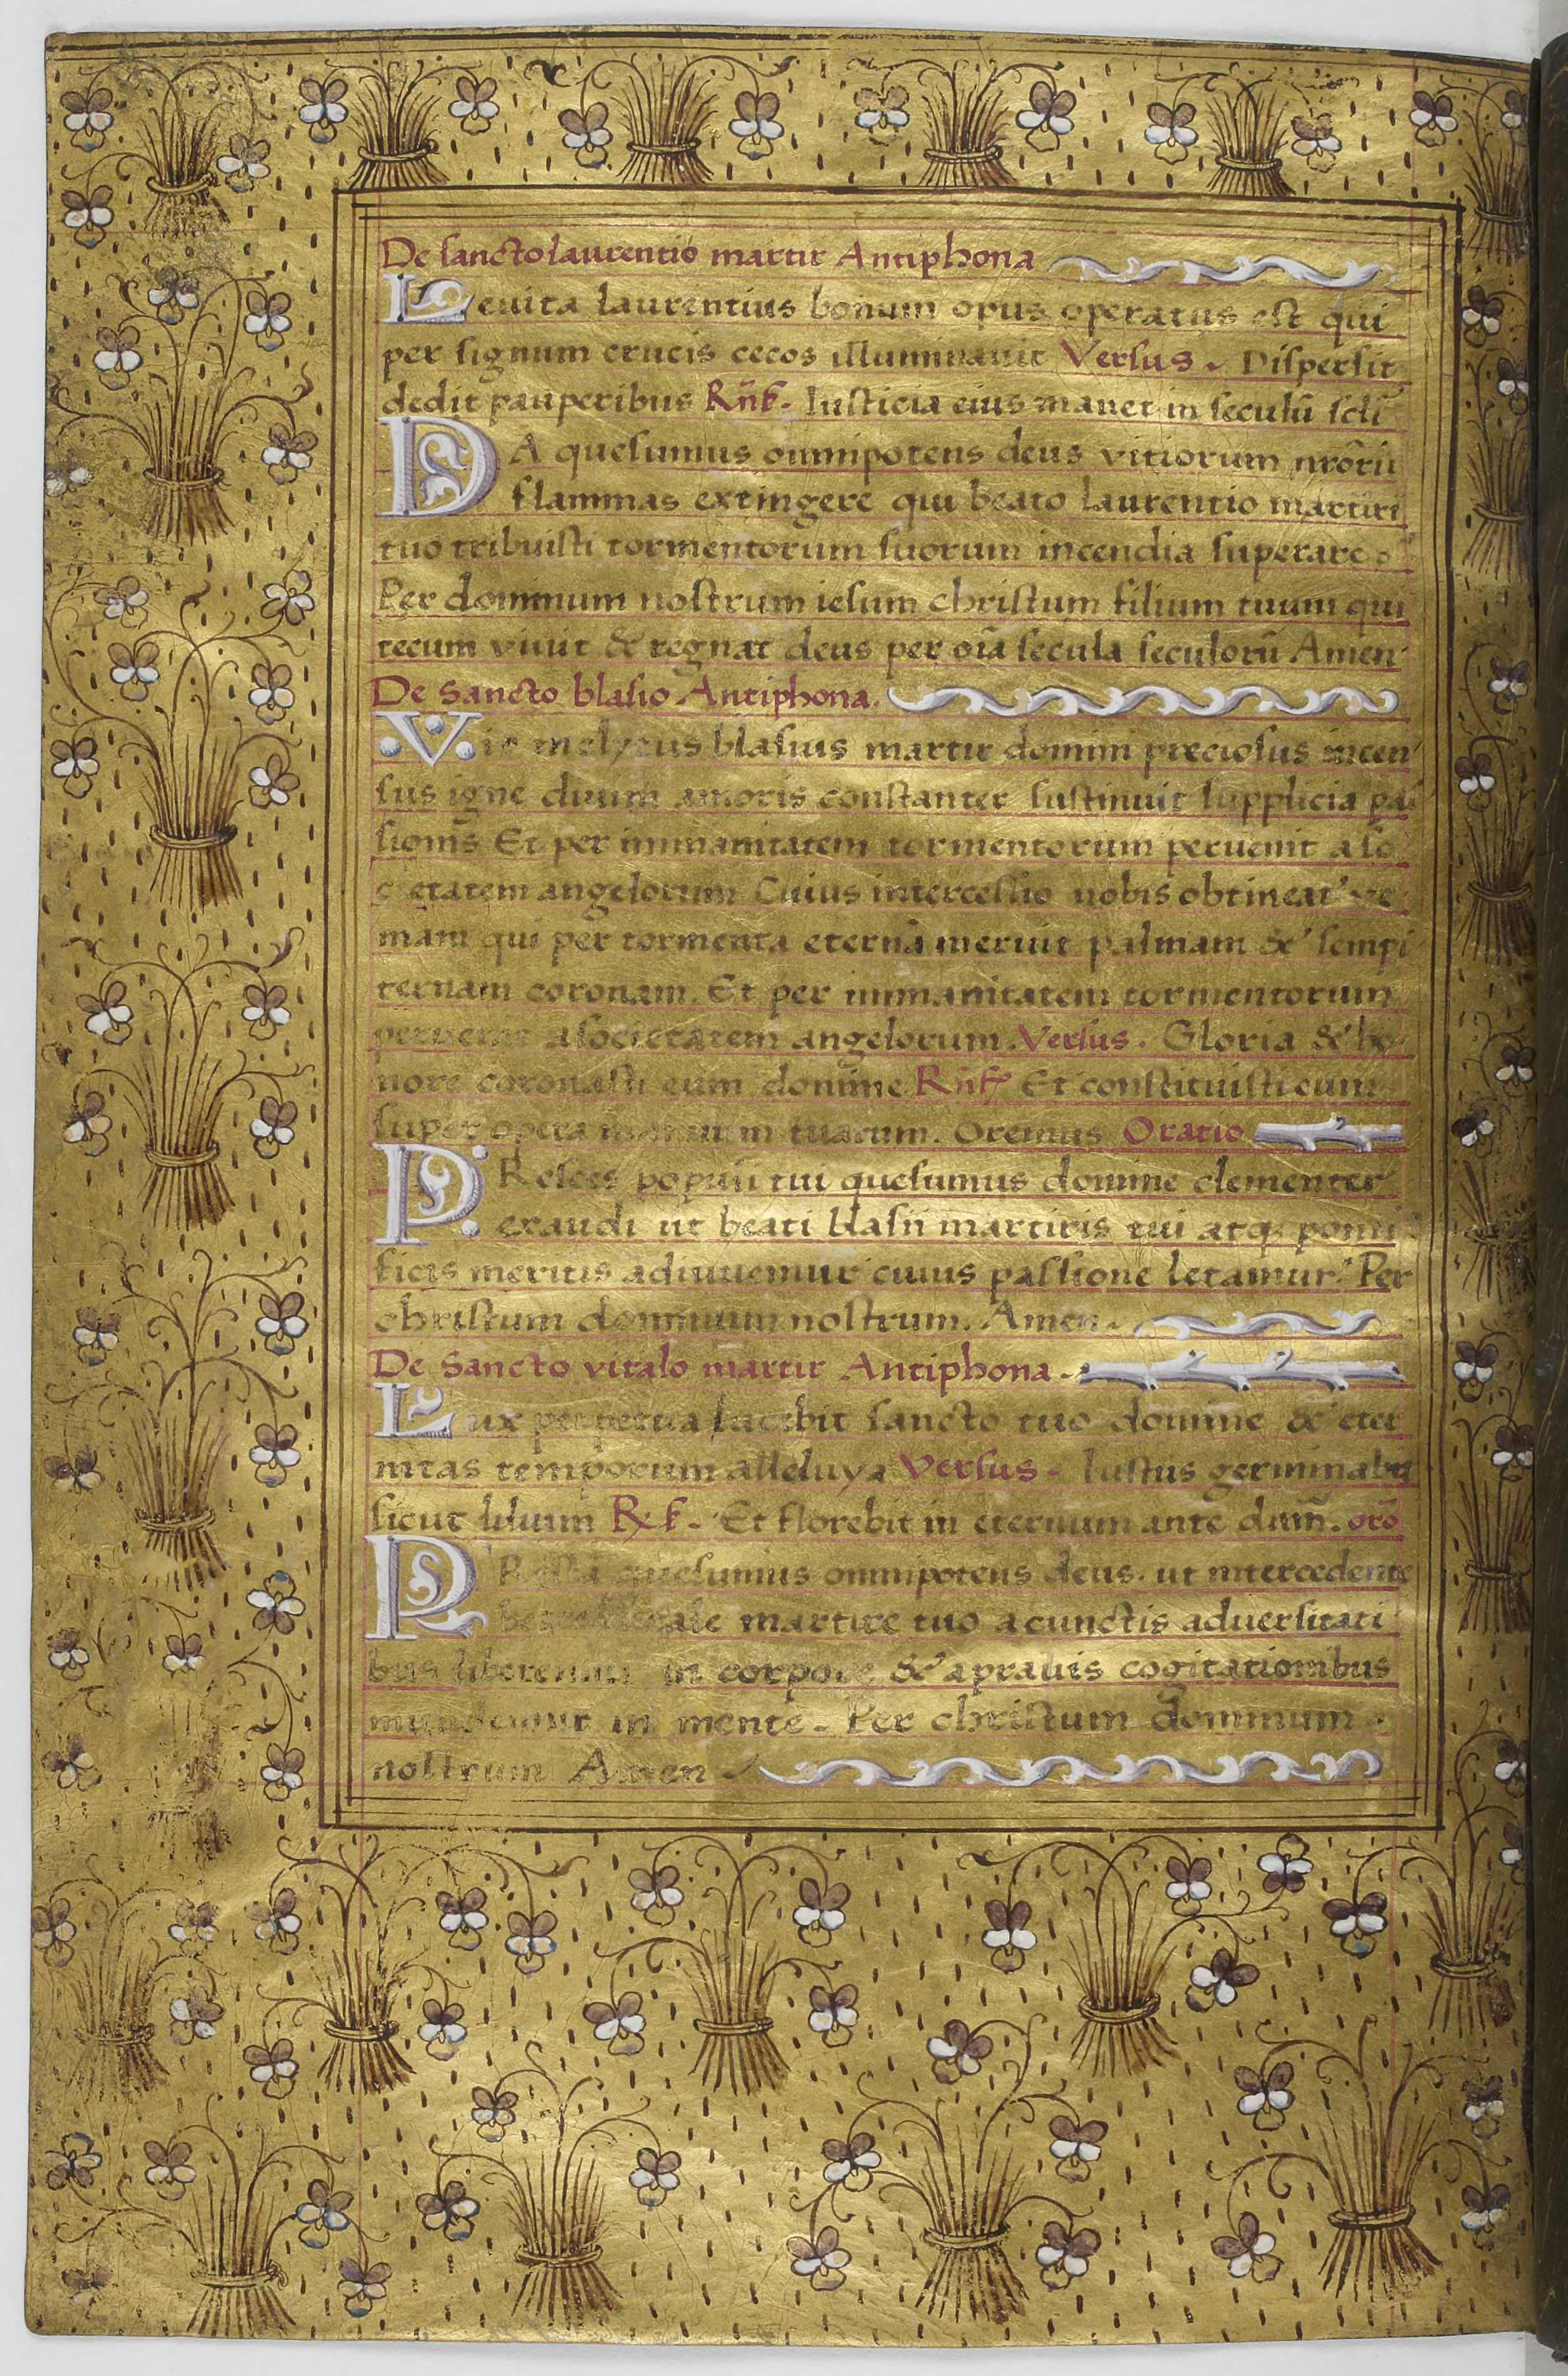 De sancto laurentio martir Antiphona
Leuita laurentius bonum opus operatus est qui
per signum crucis cecos illuminauit Versus . Dispersit
dedit pauperibus Rñs . Iusticia eius manet in seculũ scłi
DA quesumus omnipotens deus vitiorum nrõrũ
flammas extingere qui beato laurentio martiri
tuo tribuisti tormentorum suorum incendia superare .
Per dominum nostrum iesum christum filium tuum qui
tecum viuit & regnat deus per oĩa secula seculorũ Amen
De Sancto blasio . Antiphona .
Vir inclytus blasius martir domini preciosus incen
sus igne diuini amoris constanter sustinuit supplicia pas
sionis Et per immanitatem tormentorum peruenit a so
cietatem angelorum Cuius intercessio nobis obtineat ve
niam qui per tormenta eterna meruit palmam & sempi
ternam coronam . Et per immanitatem tormentorum
peruenit a societatem angelorum . Versus . Gloria & ho
nore coronasti eum domine Rñs Et constituisti eum
super opera manuum tuarum . Oremus Oratio
PReces populi tui quesumus domine clementer
exaudi ut beati blasii martiris tui atq; ponti
ficis meritis adiuuemur cuius passione letamur . Per
christum dominum nostrum . Amen .
De Sancto vitalo martir Antiphona .
Lux perpetua lucebit sancto tuo domine & eter
nitas temporum alleluya Versus . Iustus germinabit
sicut lilium R . Et florebit in eternum ante dnm̃ . orõ
PResta quesumus omnipotens deus . ut intercedente
beato vitale martire tuo a cunctis aduersitati
bus liberemur in corpore & a prauis cogitationibus
mundemur in mente . Per christum dominum .
nostrum Amen .